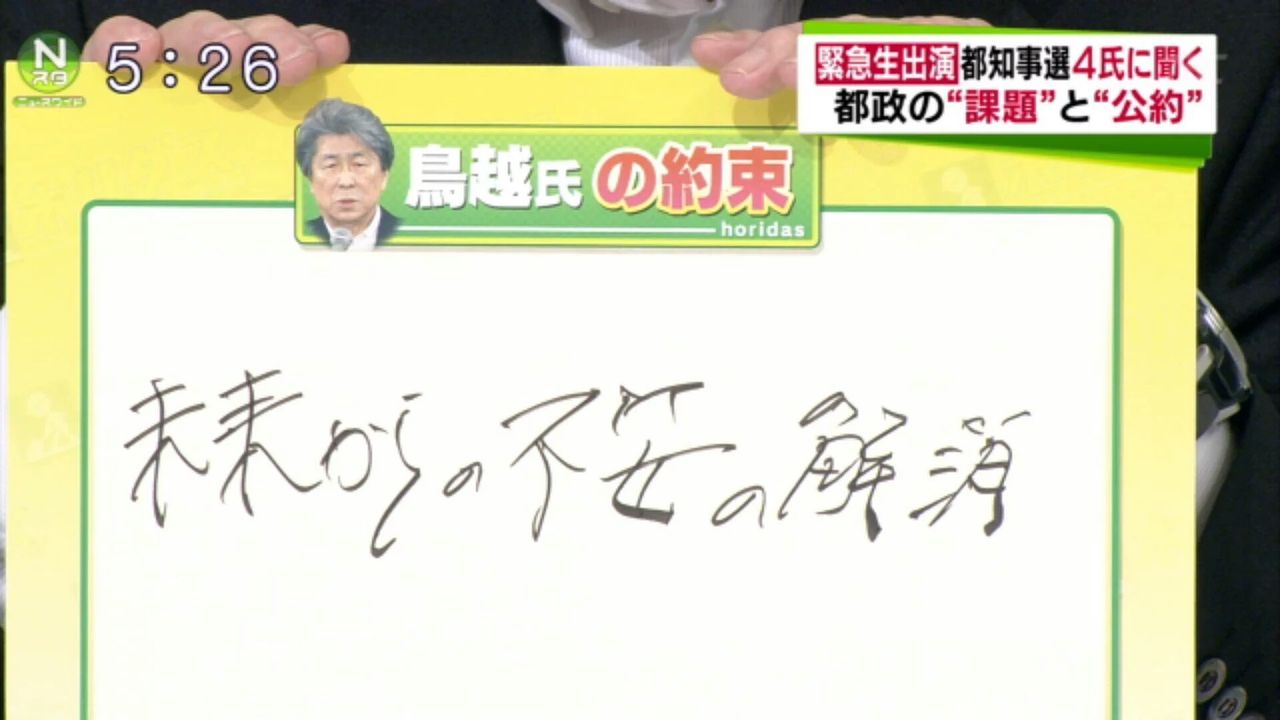 Nスタ
ニュースワイド
5:26
緊急生出演 都知事選4氏に聞く
都政の“課題”と“公約”
鳥越氏の約束
horidas
未来からの不安の解消